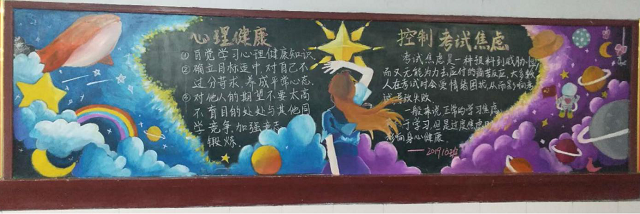 心理健康
① 自觉学习心理健康知识
② 确立目标适中对自己不
过分苛求,养成平常心态
③ 对他人的期望不要太高
不盲目的处处与其他同
学竞争,加强意志
锻炼.
控制考试焦虑
考试焦虑是一种预料到威胁性
而又无能为力去应付的痛苦反应,大多数
人在考试时会受情绪困扰,从而影响
考致失败
一般来说正常的学习焦虑
于学习,但是过度焦虑
影响身心健康